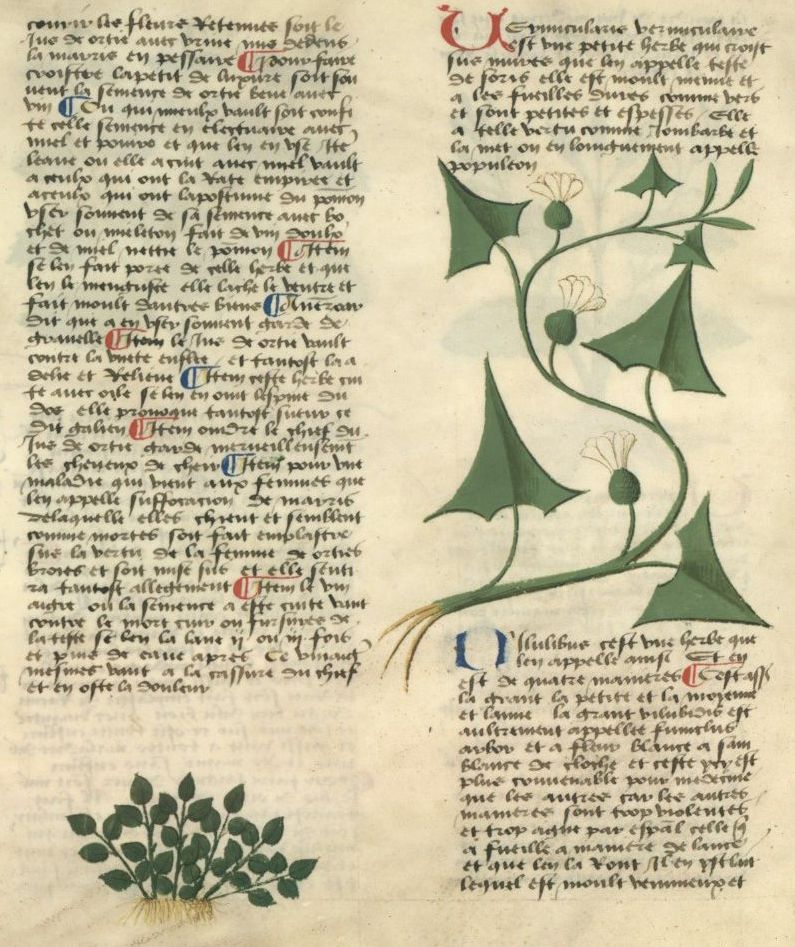 courir les fleurs Retenues soit le
Jus de ortie auec vrine mis dedens
la marris en pessaire Pour faire
croistre lapetit de luxure soit sou
uent la semence de ortie beue auec
vin Ou qui mieulx vault soit confi
te celle semence en electuaire auec
miel et poiure et que len en vse Ite
leaue ou elle a cuit auec miel vault
a ceulx qui ont la Rate empiree et
a ceulx qui ont lapostume du pomon
vser souuent de sa semence auec bo
chet ou mieleton fait de vin doulx
et de miel nettie le pomon Item
se len fait poree de celle herbe et que
len le menguisse elle lache le ventre et
fait moult dautres biens
dit que a en vser souuent garde de
grauelle Item le Jus de ortie vault
contre la enflee et tantost la a
debie et Relieue Item ceste herbe cui
te auec oile se len en oint lespine du
dos elle prouoque tantost sueur ce
dit galien Item oindre le chief du
Jus de ortie garde merueilleusement
les cheueux de cheir Item pour vne
maladie qui vient aux femmes que
len appelle suffocacion de marris
delaquelle elles chient et semblent
comme mortes soit fait emplastre
sus la vertu de la femme de orties
broies et soit mise sus et elle senti
ra tantost allegement Item le vin
aigre ou la semence a este cuite vaut
contre le mort cuir ou fursures de
la teste se len la laue ii ou iii fois
et puis de eaue apres Ce vinaig
mesmes vaut a la cassure du chief
et en oste la douleur
Vermicularis vermiculaire
est vne petite herbe qui croist
sus mures que len appelle teste
de soris elle est moult menue et
a les fueilles dures comme vers
et sont petites et espesses Elle
a telle vertu comme Jombarbe et
la met on en longuement appelle
populeon
Vilulibus cest vne herbe que
len appelle ainsi Et en
est de quatre manieres Cest ass
la grant la petite et la moyenne
et laune la grant vilubidis est
aultrement appellee funiclus
arbor et a fleur blance a sam
blance de cloche et ceste cy est
plus conuenable pour medecine
que les autres car les autres
manieres sont trop violentes
et trop ague par espal celle q
a fueille a maniere de lance
et que len la Ront Il en yst lait
lequel est moult venimeux et